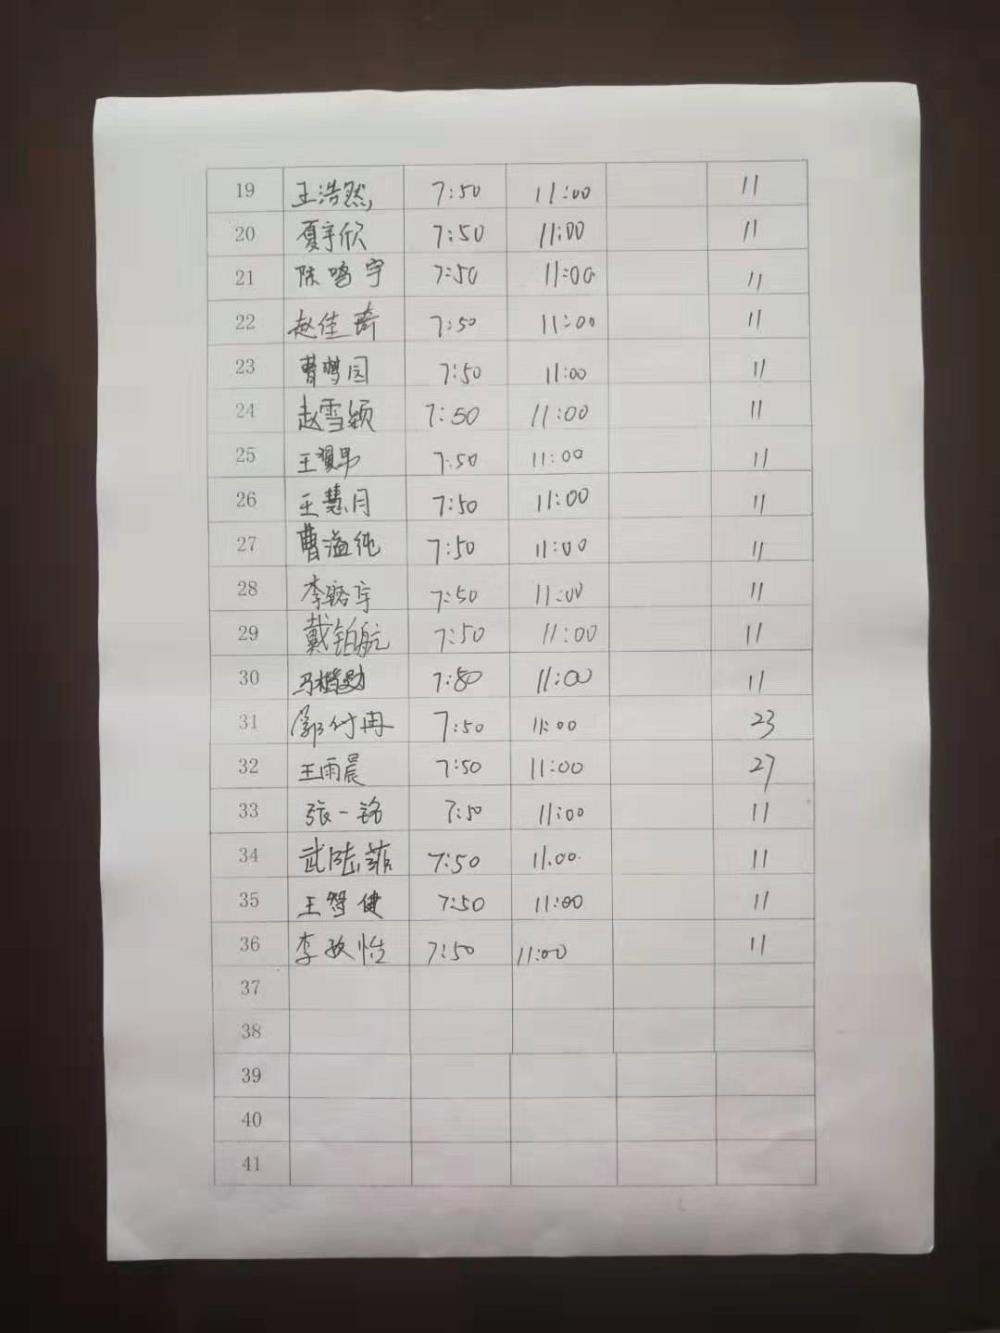 19 王浩然 7:50 11:00 11
20 夏宇欣 7:50 11:00 11
21 陈鸣宇 7:50 11:00 11
22 赵佳琦 7:50 11:00 11
23 曹梦园 7:50 11:00 11
24 赵雪颖 7:50 11:00 11
25 王 7:50 11:00 11
26 王慧月 7:50 11:00 11
27 曹溢纯 7:50 11:00 11
28 李 7:50 11:00 11
29 戴铂航 7:50 11:00 11
30 马楷勋 7:50 11:00 11
31 郭付冉 7:50 11:00 23
32 王雨晨 7:50 11:00 27
33 张一铭 7:50 11:00 11
34 武陆菲 7:50 11:00 11
35 王智健 7:50 11:00 11
36 李 怡 7:50 11:00 11
37
38
39
40
41